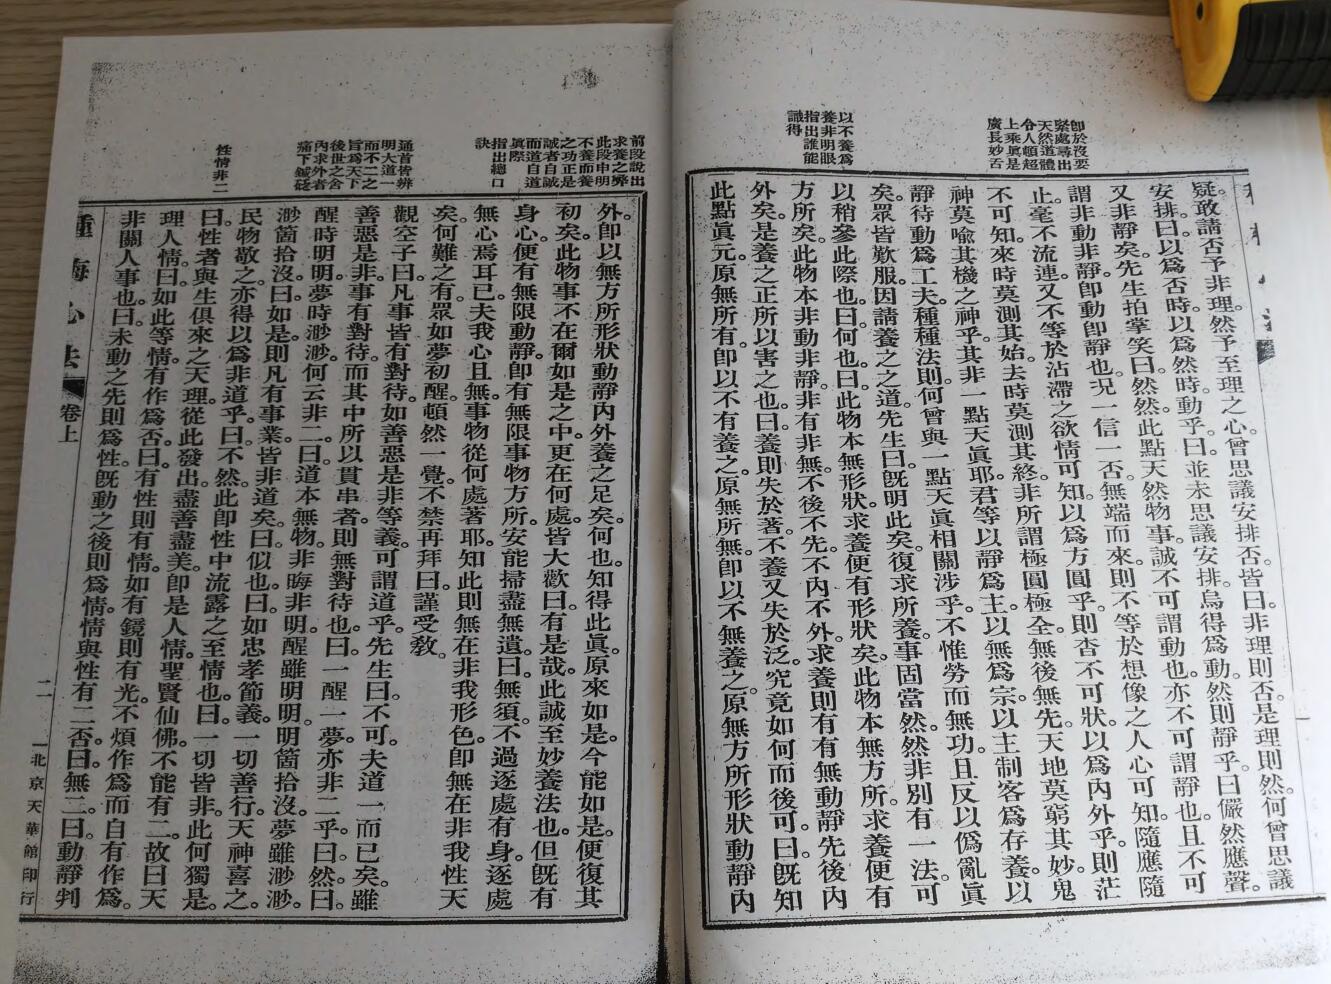 即於沒要
緊處尋出
天然道體
令人頓超
上乘眞是
廣長妙舌
以不養爲
養非明眼
指出誰能
識得
疑。敢請否。予非理。然予至理之心。曾思議安排否。皆曰。非理則否。是理則然。何曾思議
安排。曰。以爲否時。以爲然時。動乎。曰。並未思議安排。烏得爲動。然則靜乎。曰。儼然應聲。
又非靜矣。先生拍掌笑曰。然然。此點天然物事。誠不可謂動也。亦不可謂靜也。且不可
謂非動非靜。卽動卽靜也。况一信一否。無端而來。則不等於想像之人心可知。隨應隨
止。毫不流連。又不等於沾滯之欲情可知。以爲方圓乎。則杳不可狀。以爲內外乎。則茫
不可知。來時莫測其始。去時莫測其終。非所謂極圓極全。無後無先。天地莫窮其妙。鬼
神莫喩其機之神乎。其非一點天眞耶。君等以靜爲主。以無爲宗。以主制客爲存養。以
靜待動爲工夫。種種法則。何曾與一點天眞相關涉乎。不惟勞而無功。且反以僞亂眞
矣。眾皆歎服。因請養之之道。先生曰。旣明此矣。復求所養。事固當然。然非別有一法。可
以稍參此際也。曰。何也。曰。此物本無形狀。求養便有形狀矣。此物本無方所。求養便有
方所矣。此物本非動非靜。非有非無。不後不先。不內不外。求養則有有無動靜先後內
外矣。是養之。正所以害之也。曰。養則失於著。不養又失於泛。究竟如何而後可。曰。旣知
此點眞元。原無所有。卽以不有養之。原無所無。卽以不無養之。原無方所形狀動靜內
前段說出
求養之弊
此段申明
不養而養
之功正是
誠者自誠
而道自道
眞際
指出總口
訣
通首皆辨
明大道一
而不二之
旨爲天下
後世之舍
內求外者
痛下鍼砭
性情非二
外。卽以無方所形狀動靜內外養之足矣。何也。知得此眞。原來如是。今能如是。便復其
初矣。此物事不在爾如是之中。更在何處。皆大歡曰。有是哉。此誠至妙養法也。但旣有
身心。便有無限動靜。卽有無限事物方所。安能掃盡無遺。曰。無須。不過逐處有身。逐處
無心焉耳已。夫我心且無。事物從何處著耶。知此則無在非我形色。卽無在非我性天
矣。何難之有。眾如夢初醒。頓然一覺。不禁再拜曰。謹受敎。
觀空子曰。凡事皆有對待。如善惡是非等義。可謂道乎。先生曰。不可。夫道一而已矣。雖
善惡是非。事有對待。而其中所以貫串者。則無對待也。曰。一醒一夢。亦非二乎。曰。然。曰。
醒時明明。夢時渺渺。何云非二。曰。道本無物。非晦非明。醒雖明明。明箇拾沒。夢雖渺渺。
渺箇拾沒。曰。如是。則凡有事業。皆非道矣。曰。似也。曰。如忠孝節義。一切善行。天神喜之。
民物敬之。亦得以爲非道乎。曰。不然。此卽性中流露之至情也。曰。一切皆非。此何獨是。
曰。性者。與生俱來之天理。從此發出。盡善盡美。卽是人情。聖賢仙佛。不能有二。故曰天
理人情。曰。如此等情。有作爲否。曰。有性則有情。如有鏡則有光。不煩作爲。而自有作爲。
非關人事也。曰。未動之先則爲性。旣動之後則爲情。情與性有二否。曰。無二。曰。動靜判
心法
卷上
二
北京天華館印行